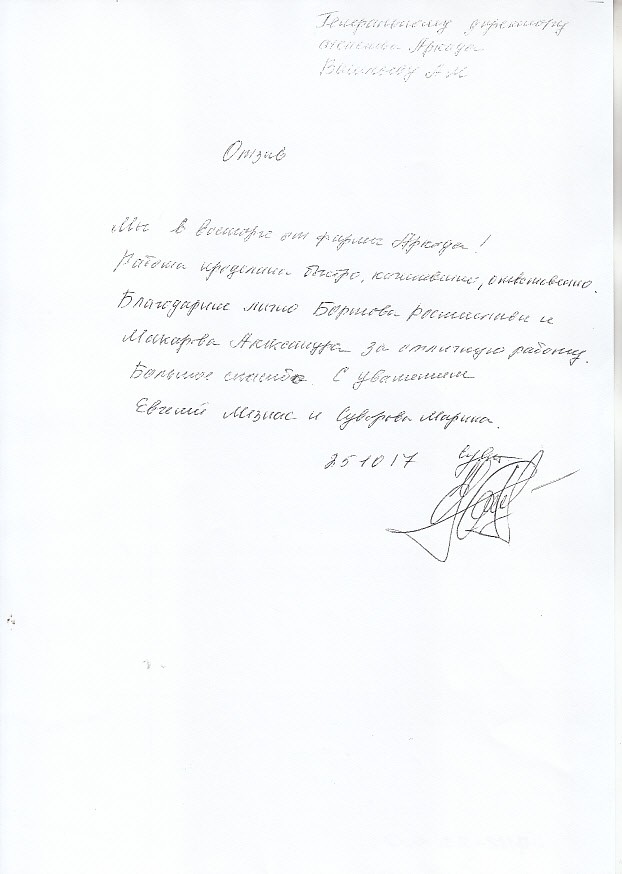 Генеральному директору
агенства Аркада
А М
Отзыв
Мы в восторге от фирмы Аркада!
Работа проделана быстро, качественно, ответственно.
Благодарим лично Бортова Ростислава и
Макарова Александра за отличную работу.
Большое спасибо. С уважением
Евгений и Суворова Марина.
25 10 17